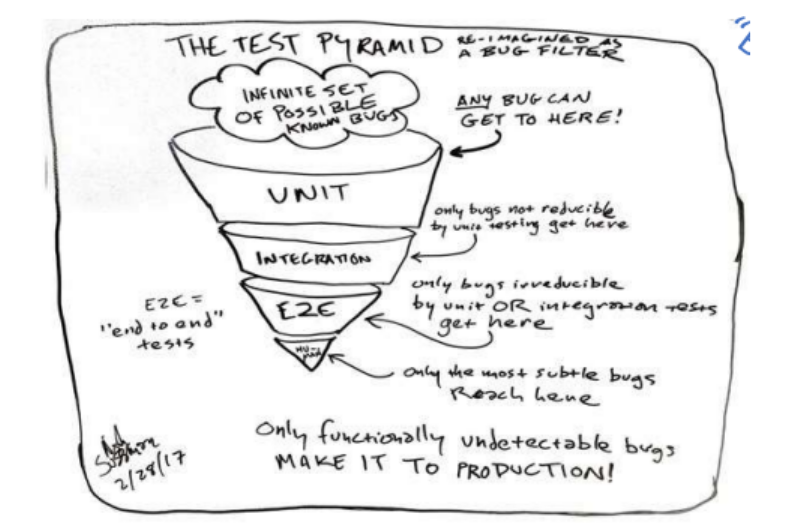 THE TEST PYRAMID
RE-IMAGINED AS
A BUG FILTER
INFINITE SET
OF POSSIBLE
KNOWN BUGS
ANY BUG CAN
GET TO HERE!
UNIT
only bugs not reducible
by unit testing get here
INTEGRATION
only bugs irreducible
by unit OR integration tests
get here
E2E
E2E =
"end to end"
tests
HU-
MAN
only the most subtle bugs
Reach here
Only functionally undetectable bugs
MAKE IT TO PRODUCTION!
2/28/17